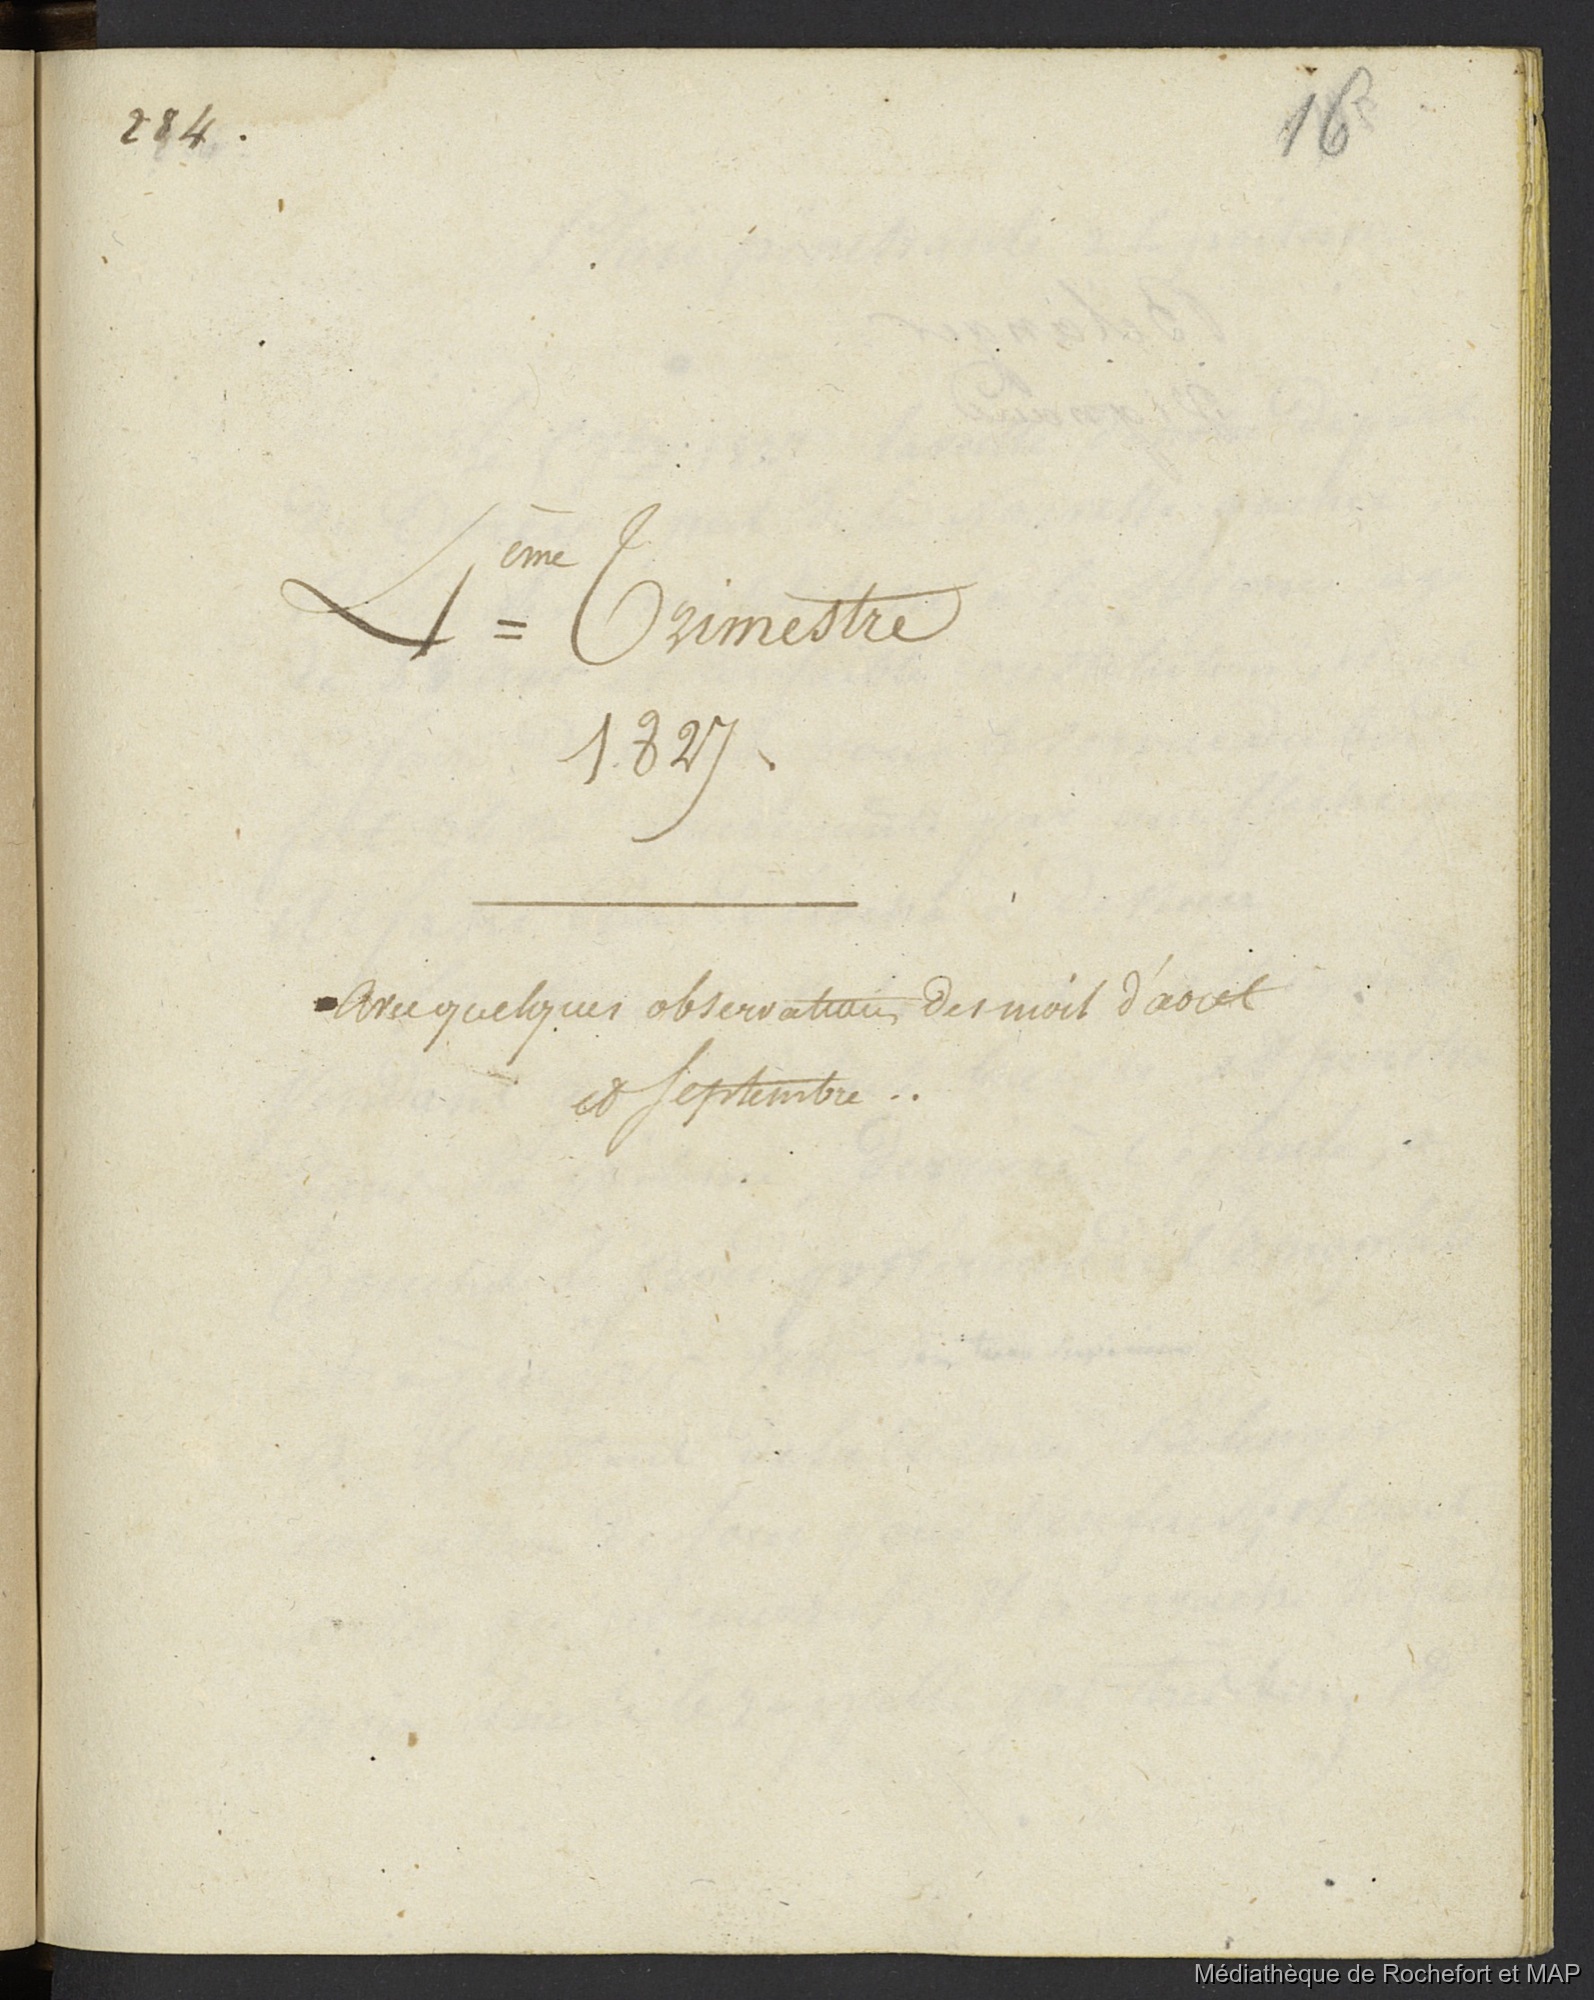 284.
16
4ème = Trimestre
1827.
avec quelques observations des mois d'aout
et septembre ..
Médiathèque de Rochefort et MAP